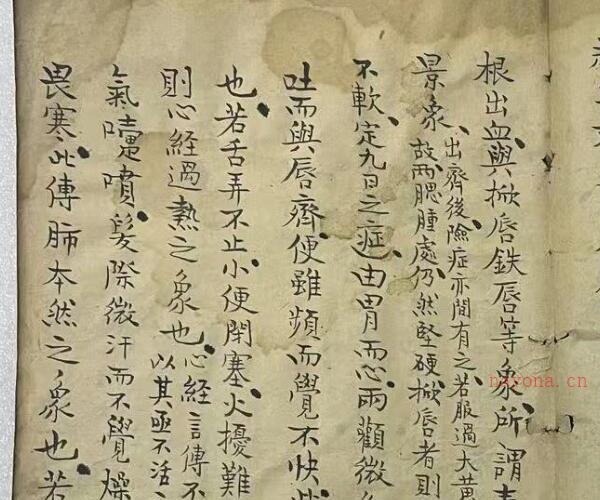 根出血與掀唇鉄唇等象所謂
景象
出齊後險症亦間有之若服過大黃
故兩腮腫處仍然堅硬掀唇者則
不軟定九日之症由胃而心兩顴微
吐而與唇齊便雖頻而覺不快
也若舌弄不止小便閉塞火擾難
則心經過熱之象也
心經言傳不
以其亟不活
氣嚏噴髮際微汗而不覺燥
畏寒此傳肺本然之象也若
nayona.cn